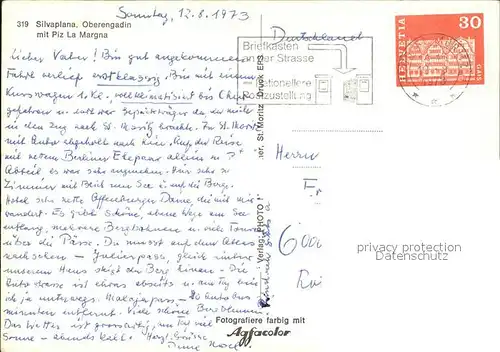 Sonntag, 12.8.1973
319 Silvaplana, Oberengadin
mit Piz La Margna
Deutschland
Briefkasten
der Strasse
rationellere
Postzustellung
HELVETIA
30
GAIS
Lieber Vater! Bin gut angekommen
Fahrt verlief erstklassig. Bin mit einem
Kurswagen 1. Kl. vollklimatisiert bis Chur
gefahren und dort war Gepäckträger da, der mich
in den Zug nach St. Moritz brachte. In St. Moritz
mit Auto abgeholt nach hier. Auf der Reise
mit nettem Berliner Ehepaar allein im
Abteil, es war sehr angenehm. Hier sehr
Zimmer mit Blick zum See u. auf die Berge.
Hotel sehr nette Offenburger Dame, die mit mir
wandert. Es gibt schöne, ebene Wege am See
entlang, mehrere Bergbahnen u. viele Touren
über die Pässe. Du musst auf dem Atlas
nachsehen – Julierpass, gleich hinter
unserem Haus steigt der Berg hinan. Die
Autostrasse ist etwas abseits
ich ja unterwegs. Malojapass – 20 Auto
minuten entfernt. Viele schöne Bergblumen.
Das Wetter ist grossartig, am Tag viel
Sonne – abends kalt. Herzl. Grüsse
Deine
Herrn
Fr
6000
St. Moritz Druck EPS
Verlag: PHOTO
privacy protected
Datenschutz
Fotografiere farbig mit
Agfacolor